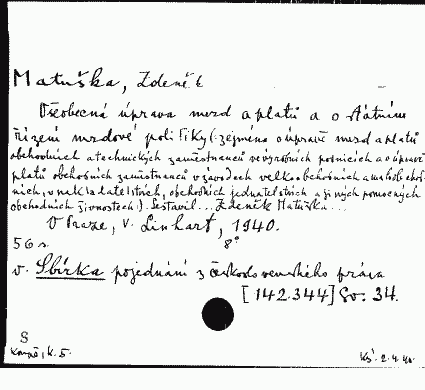 Matuška, Zdeněk
Všeobecná úprava mezd a platů a o státním
řízení mzdové politiky (: zejména o úpravě mezd a platů
obchodních a technických zaměstnanců ve výrobních podnicích a o úpravě
platů obchodních zaměstnanců v závodech velkoobchodních a maloobchod-
ních, v nakladatelstvích, obchodních jednatelstvích a jiných pomocných
obchodních živnostech:). Sestavil... Zdeněk Matuška...
V Praze, V. Linhart, 1940.
56 s. 8°
v. Sbírka pojednání z československého práva
[142.344] Sv. 34.
8
K. 5.
2.4.41.